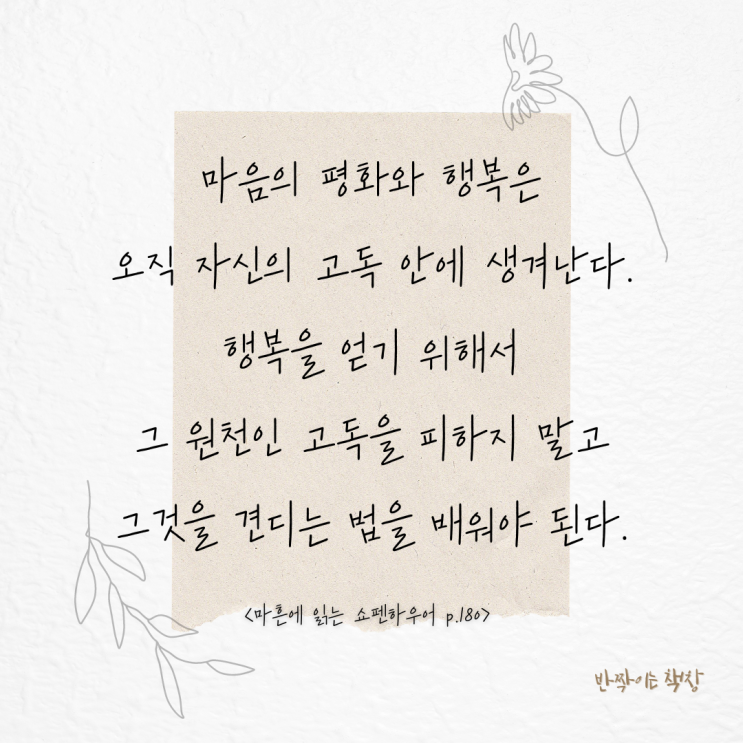 마음의 평화와 행복은
오직 자신의 고독 안에 생겨난다.
행복을 얻기 위해서
그 원천인 고독을 피하지 말고
그것을 견디는 법을 배워야 된다.
<마흔에 읽는 쇼펜하우어 p.180>
반짝이는 책장